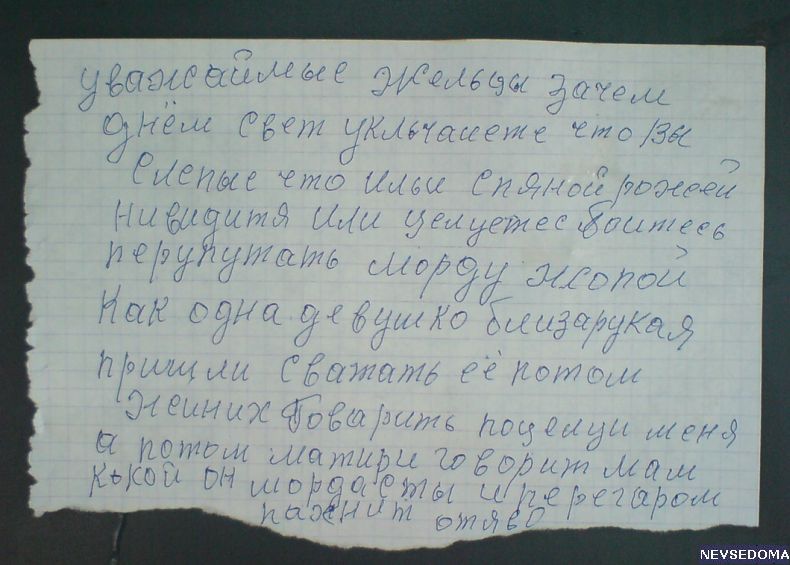 уважаймые жельцы зачем
днём свет укльчанете что вы
слепые что ильи спяной рожей
нивидитя или целуетес боитесь
перупутать морду жопой
как одна девушко близарукая
пришли сватать её потом
жених говарить поцелуи меня
а потом матири говорит мам
кокой он мордасты и перегаром
пахнит отяво
NEVSEDOMA